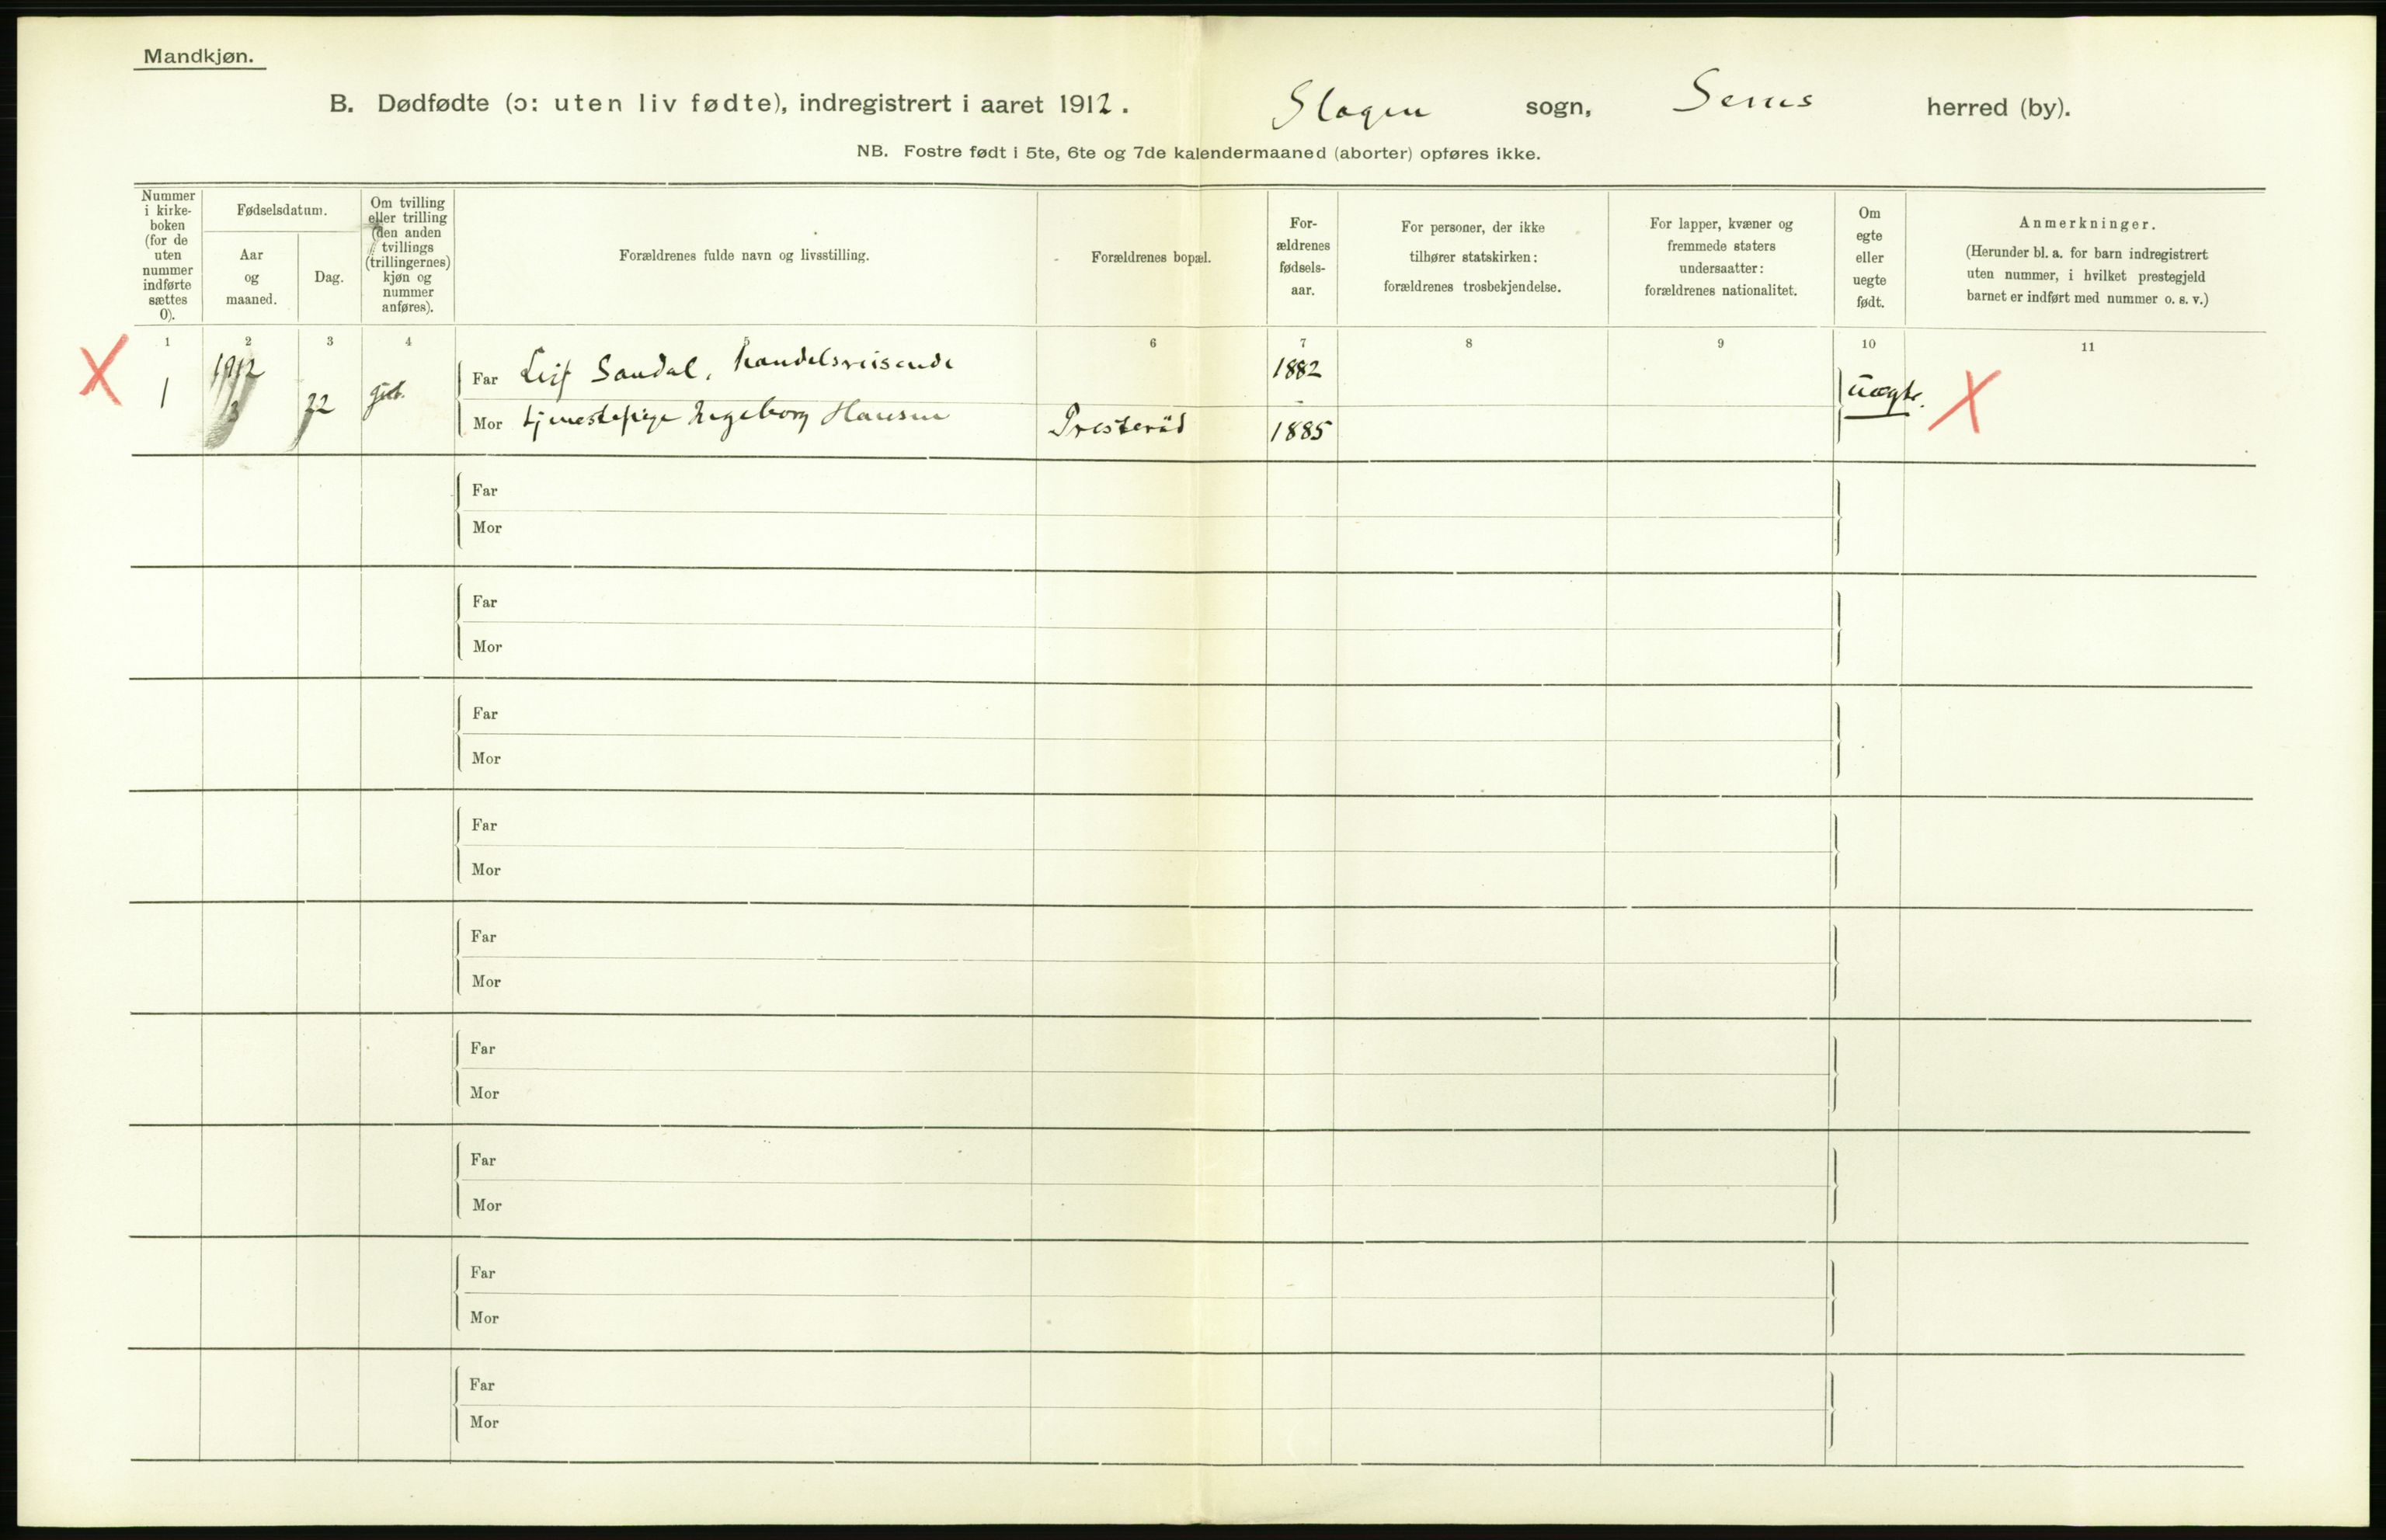 Mandkjøn.
B. Dødfødte (ɔ: uten liv fødte), indregistrert i aaret 1912. Slagen sogn, Sems herred (by).
NB. Fostre født i 5te, 6te og 7de kalendermaaned (aborter) opføres ikke.
Nummer
i kirke-
boken
(for de
uten
nummer
indførte
sættes
0).
Fødselsdatum.
Aar
og
maaned.
Dag.
Om tvilling
eller trilling
(den anden
tvillings
(trillingernes)
kjøn og
nummer
anføres).
Forældrenes fulde navn og livsstilling.
Forældrenes bopæl.
For-
ældrenes
fødsels-
aar.
For personer, der ikke
tilhører statskirken:
forældrenes trosbekjendelse.
For lapper, kvæner og
fremmede staters
undersaatter:
forældrenes nationalitet.
Om
egte
eller
uegte
født.
Anmerkninger.
(Herunder bl. a. for barn indregistrert
uten nummer, i hvilket prestegjeld
barnet er indført med nummer o. s. v.)
1 2 3 4 5 6 7 8 9 10 11
1
1912
3
22
Far Leif Sandal, handelsreisende 1882
Mor tjenestepige Ingeborg Hansen Presterød 1885
uægte.
Far
Mor
Far
Mor
Far
Mor
Far
Mor
Far
Mor
Far
Mor
Far
Mor
Far
Mor
Far
Mor